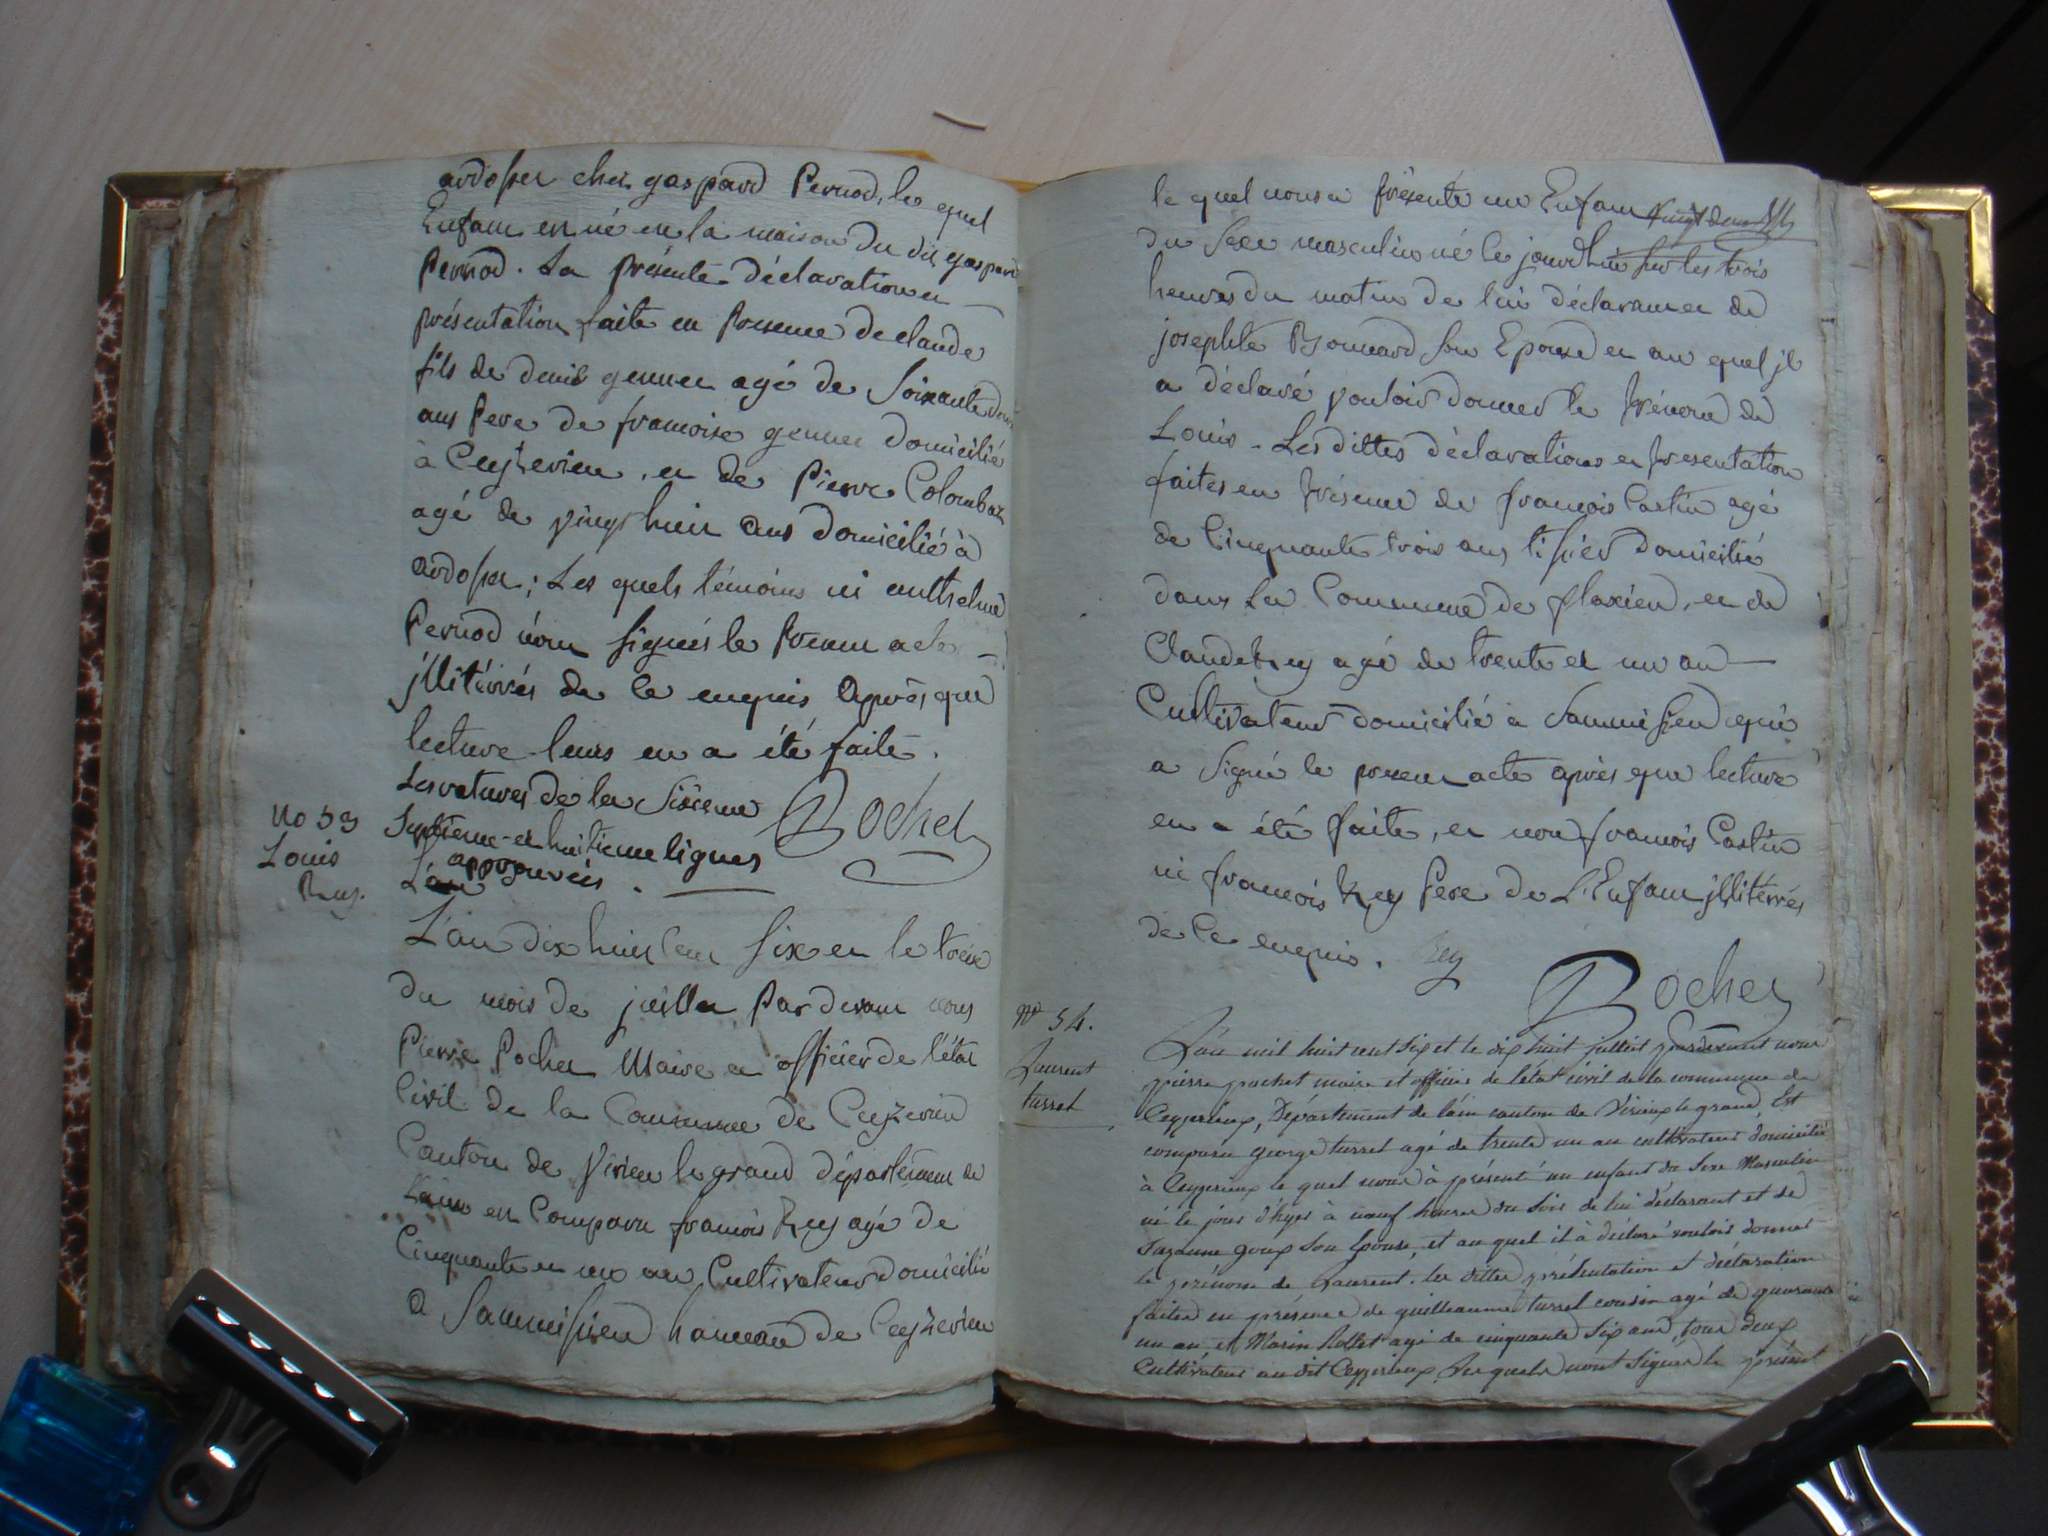 ardosset chez gaspard Pernod, le quel
Enfant est né en la maison du dit gaspard
Pernod. La présente déclaration et
présentation faite en presence de claude
fils de denis gennet agé de Soixante
ans Pere de francoise gennet domicilié
à Ceyzerieu, et de Pierre Colombat
agé de vingt huit ans domicilié à
ardosset; Les quels témoins ni anthelme
Pernod n'ont signés le present acte
jllitérrés de ce enquis après que
lecture leurs en a été faite.
Les ratures de la sixieme
Septieme et huitieme lignes
approuvées.
Rochet
No 53
Louis
Rey.
L'an dix huit cent six et le treize
du mois de juillet Pardevant nous
Pierre Pochet Maire et officier de l'état
Civil de la Commune de Ceyzerieu
Canton de Virieu le grand département de
L'ain est Comparu francois Rey agé de
Cinquante et un an Cultivateur domicilié
a Sammissieu hameau de Ceyzerieu
le quel nous a présenté un Enfant
du Sexe masculin né le jourdhui sur les trois
heures du matin de lui déclarant et de
josephte Bonnard son Epouse et au quel jl
a déclaré vouloir donner le prénom de
Louis. Les dittes déclarations et presentation
faites en présence de francois Castin agé
de Cinquante trois ans tissier domicilié
dans la Commune de flaxieu, et de
Claude Rey agé de trente et un an
Cultivateur domicilié a Sammissieu qui
a signé le present acte après que lecture
en a été faite, et non francois Castin
ni francois Rey Pere de L'Enfant jllitérrés
de ce enquis. Rey
Rochet
No 54.
Laurent
turret
L'an mil huit cent six et le dix huit juillet pardevant nous
pierre pochet maire et officier de l'état civil de la commune de
Ceyzerieux, Département de l'ain canton de Virieux le grand, Est
comparu george turret agé de trente un an cultivateur domicilié
à Ceyzerieux le quel nous à présenté un enfant du sexe Masculin
né le jour d'hyer à neuf heures du soir de lui déclarant et de
Suzanne goux son Epouse, et au quel il à déclaré vouloir donner
le prénom de Laurent. les dittes présentation et déclaration
faites en présence de guilleaume turret cousin agé de quarante
un an et Marin Rollet agé de cinquante six ans, tous deux
Cultivateur au dit Ceyzerieux, les quels n'ont signés le présent